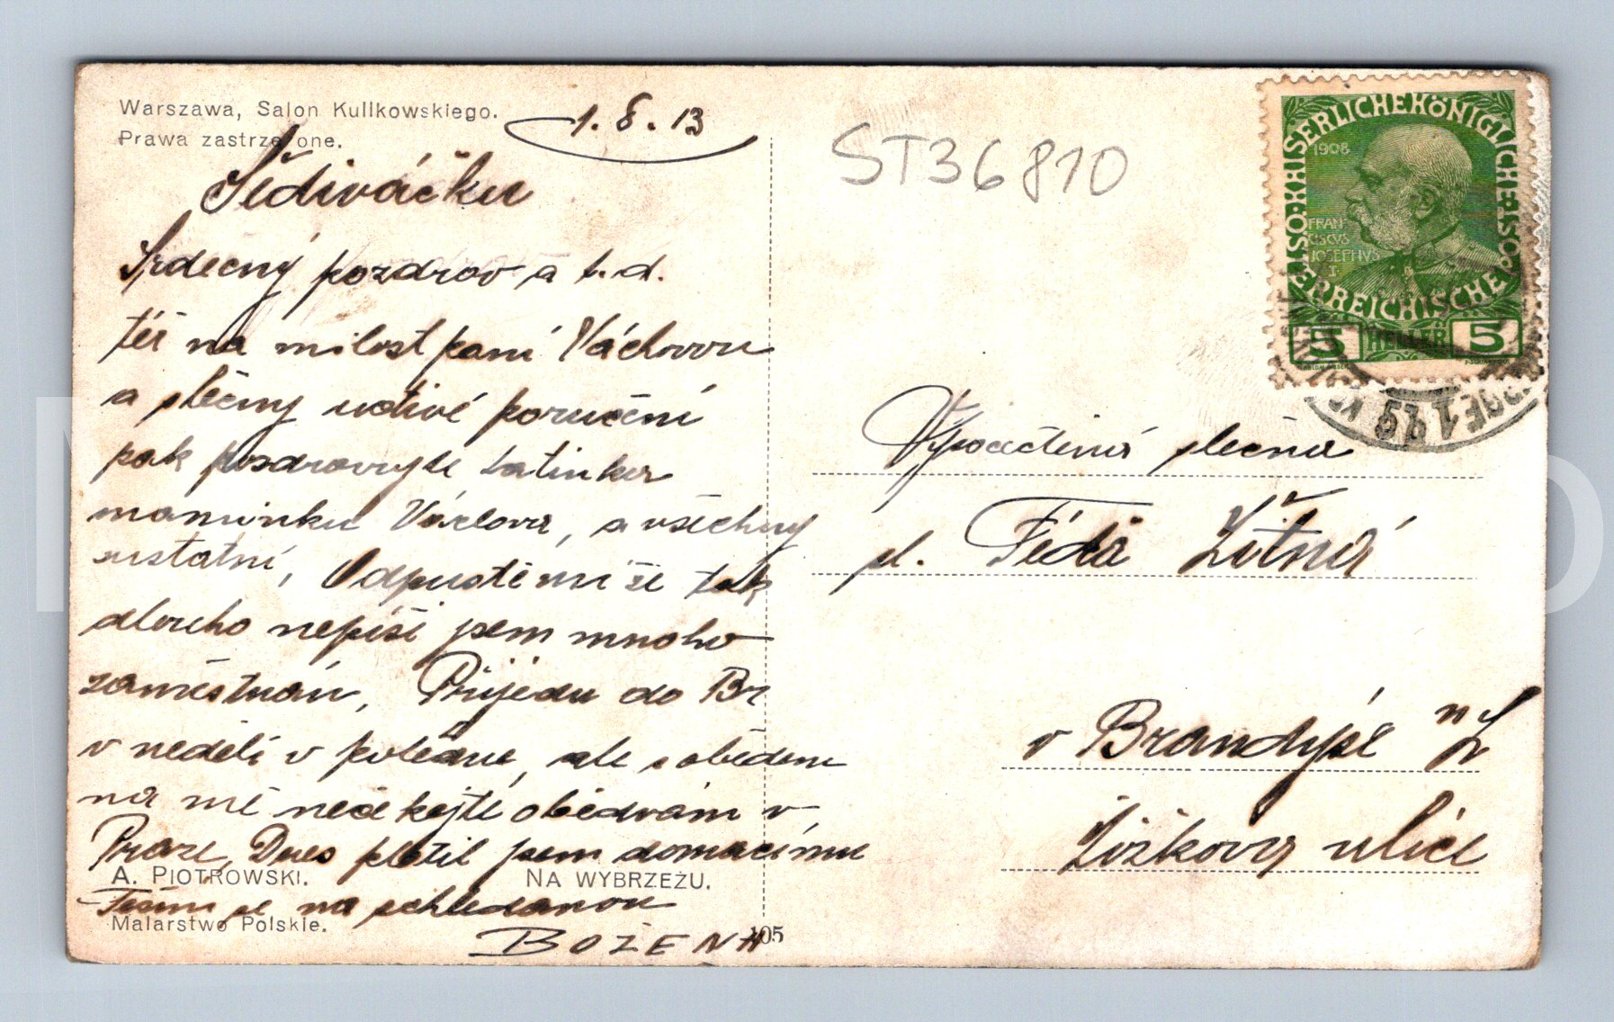 Warszawa, Salon Kulikowskiego.
Prawa zastrzeżone.
1. 8. 13
Šediváčku
Srdečný pozdrav a t. d.
též na milostpaní Váchovou
a slečny uctivé poručení
pak pozdravujte tatínka
maminku Václava, a všechny
ostatní, Odpusť mi že tak
dlouho nepíši jsem mnoho
zaměstnán, Přijedu do Br
v neděli v poledne, ale s obědem
na mě nečekejte obědvám v
Praze, Dnes platil jsem domácímu
Těším se na shledanou
BOŽENA
A. PIOTROWSKI.
NA WYBRZEŻU.
Malarstwo Polskie.
105
ST36810
KAISERLICHE KÖNIGLICHE ÖSTERREICHISCHE POST
1908
FRAN
CISCVS
IOSEPHVS
I
5 HELLER 5
Vysoactěná slečna
sl. Féda Žitná
v Brandýse n L
Žižkova ulice